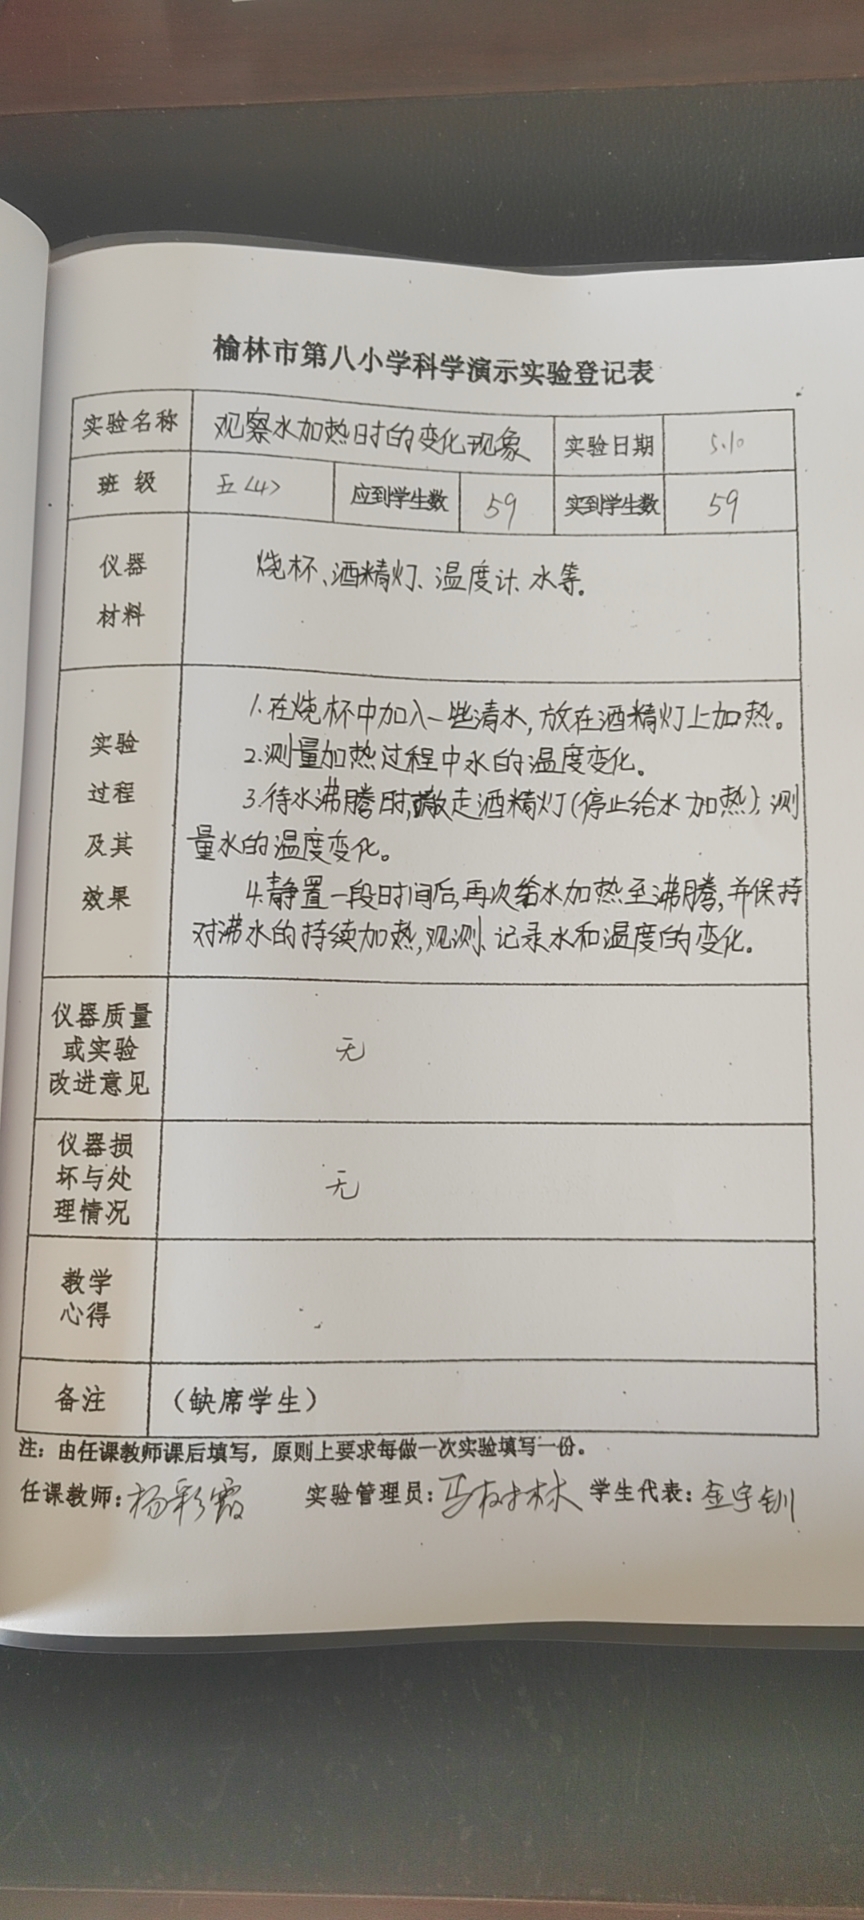 榆林市第八小学科学演示实验登记表
实验名称 观察水加热时的变化现象 实验日期 5.10
班 级 五<4> 应到学生数 59 实到学生数 59
仪器
材料
烧杯、酒精灯、温度计、水等。
实验
过程
及其
效果
1.在烧杯中加入一些清水,放在酒精灯上加热。
2.测量加热过程中水的温度变化。
3.待水沸腾时,撤走酒精灯(停止给水加热),测
量水的温度变化。
4.静置一段时间后,再次给水加热至沸腾,并保持
对沸水的持续加热,观测、记录水和温度的变化。
仪器质量
或实验
改进意见
无
仪器损
坏与处
理情况
无
教学
心得
备注 (缺席学生)
注:由任课教师课后填写,原则上要求每做一次实验填写一份。
任课教师:杨彩霞 实验管理员:马树林 学生代表:金宇钏